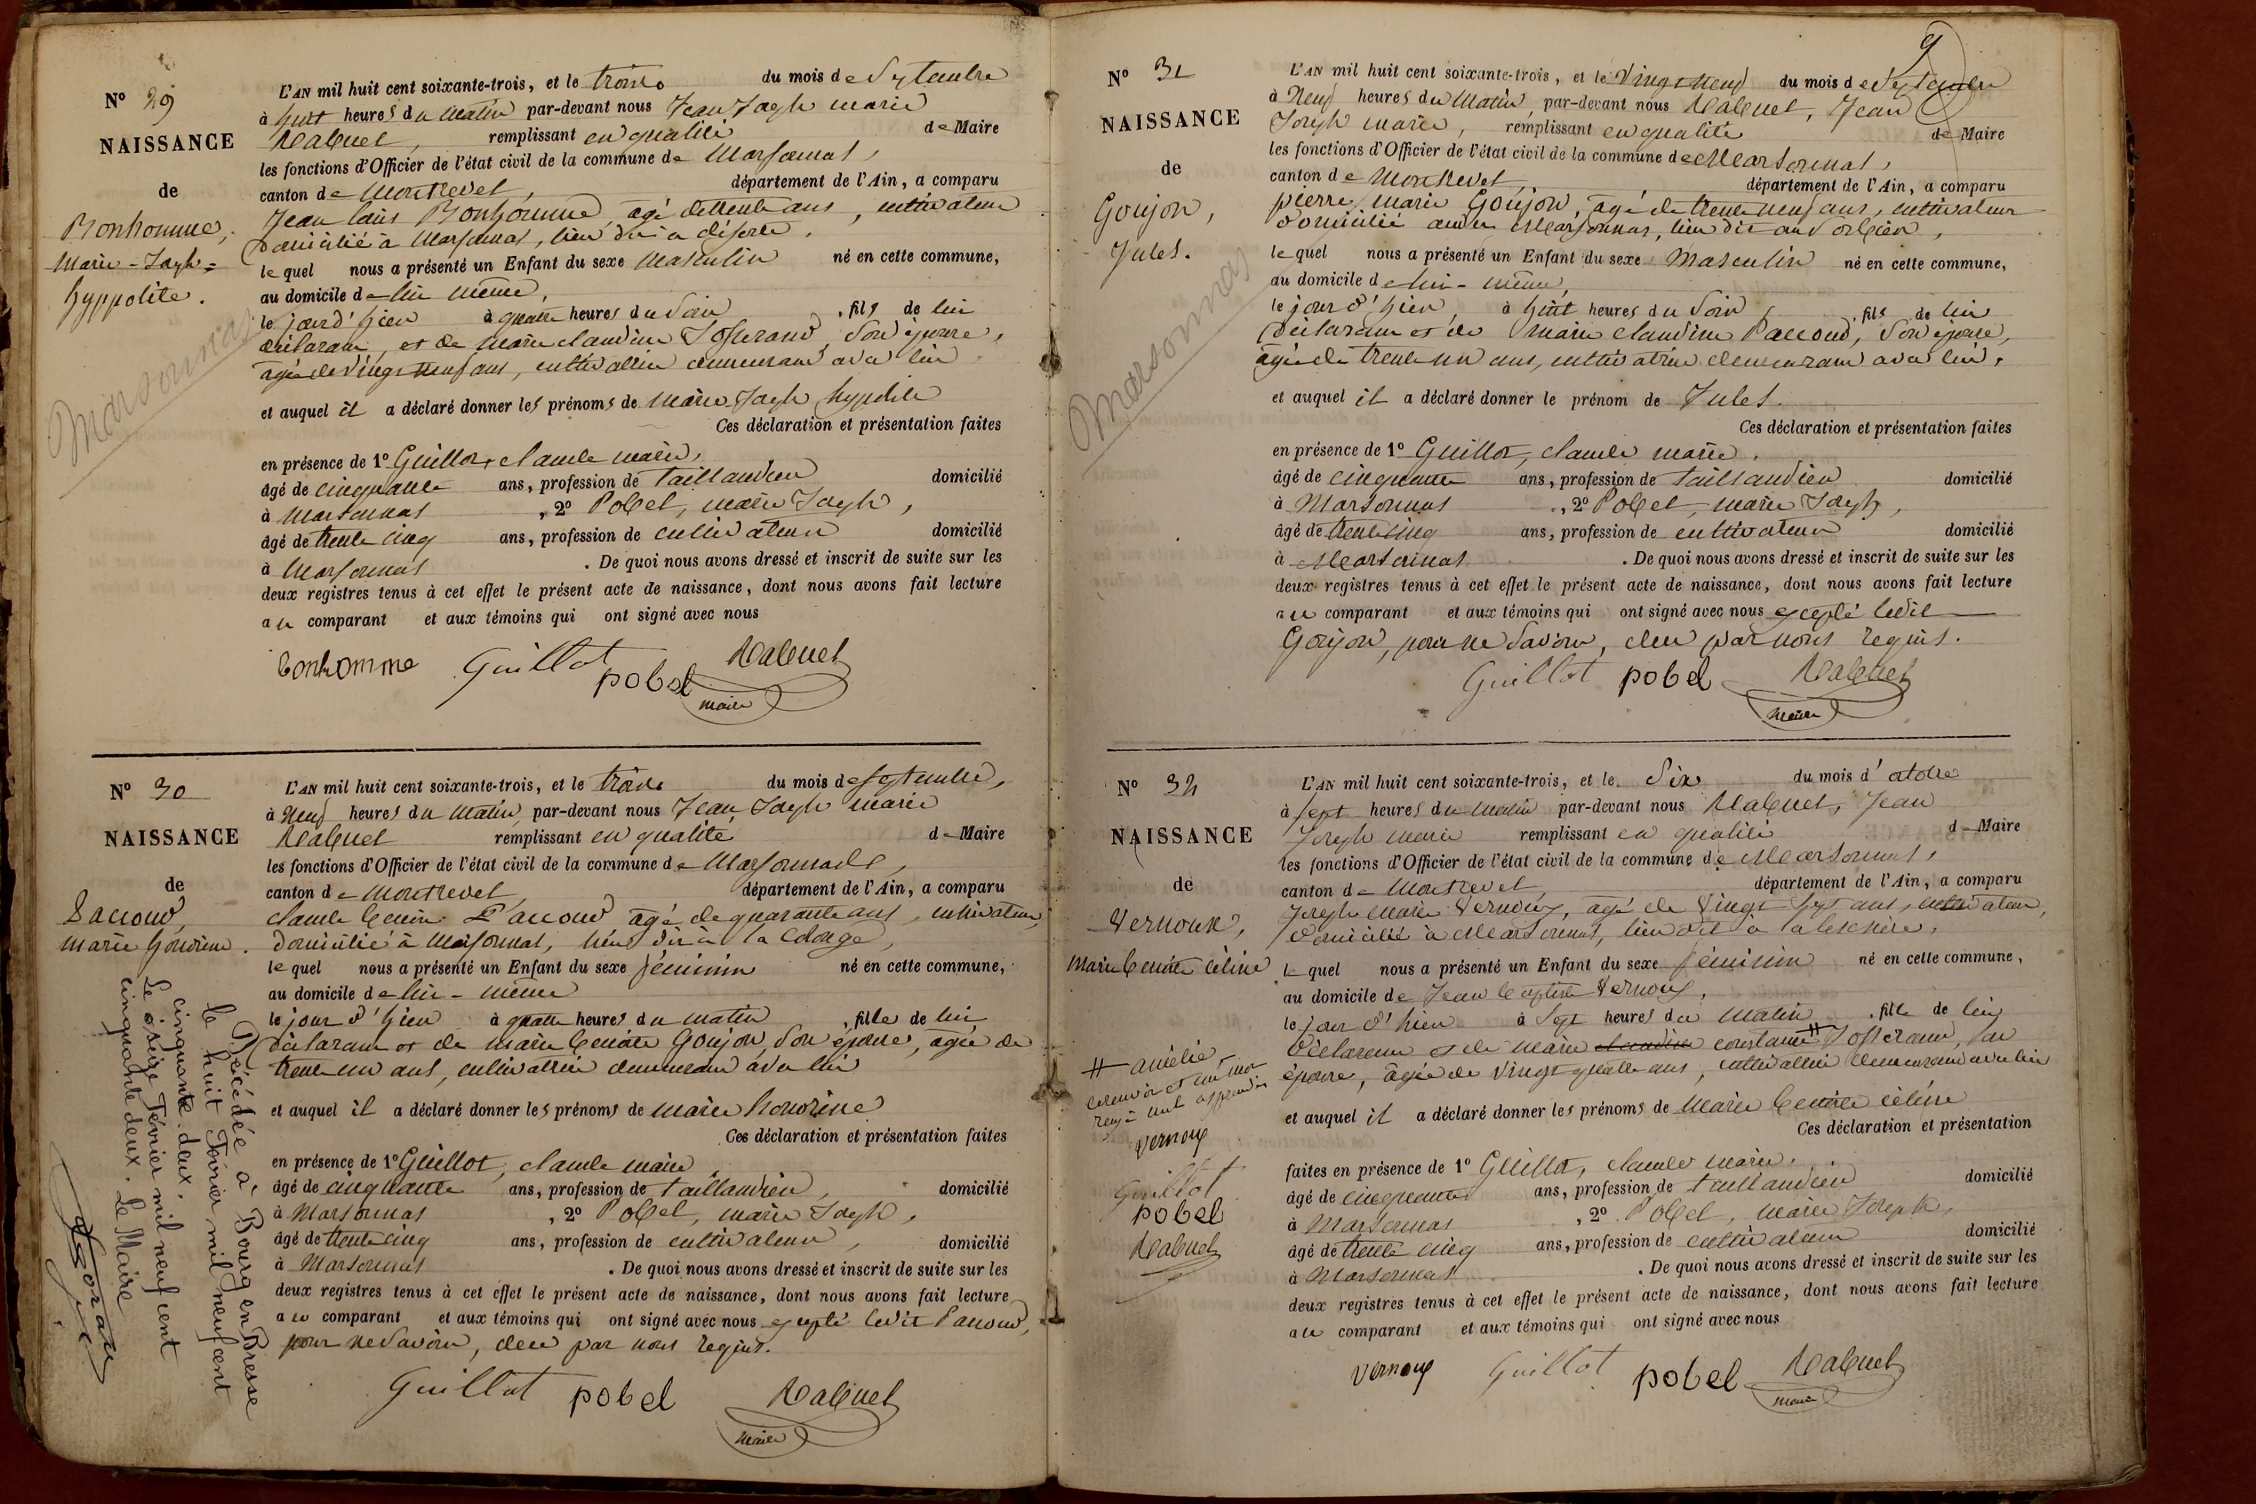 N° 29
NAISSANCE
de
Bonhomme,
Marie-Joseph-
hyppolite.
Marsonnas
L'AN mil huit cent soixante-trois, et le treize du mois de Septembre
à huit heures du matin par-devant nous Jean Joseph marie
remplissant en qualité de Maire
les fonctions d'Officier de l'état civil de la commune de Marsonnas,
canton de Montrevel, département de l'Ain, a comparu
Jean louis Bonhomme, agé de trente ans, cultivateur
Domicilié à Marsonnas, lieu dit
le quel nous a présenté un Enfant du sexe Masculin né en cette commune,
au domicile de lui même,
le jour d'hier à quatre heures du Soir, fils de lui
déclarant, et de Marie claudine Son épouse,
agée de vingt neuf ans, cultivatrice demeurant avec lui.
et auquel il a déclaré donner les prénoms de Marie Joseph hyppolite
Ces déclaration et présentation faites
en présence de 1° Guillot, claude marie,
âgé de cinquante ans, profession de taillandier domicilié
à Marsonnas, 2° Pobel, marie Joseph,
âgé de trente cinq ans, profession de cultivateur domicilié
à Marsonnas. De quoi nous avons dressé et inscrit de suite sur les
deux registres tenus à cet effet le présent acte de naissance, dont nous avons fait lecture
au comparant et aux témoins qui ont signé avec nous
bonhomme Guillot pobel
maire
N° 30
NAISSANCE
de
Paccoud,
Marie honorine.
L'AN mil huit cent soixante-trois, et le treize du mois de Septembre,
à Neuf heures du Matin, par-devant nous Jean Joseph marie
remplissant en qualité de Maire
les fonctions d'Officier de l'état civil de la commune de Marsonnas,
canton de Montrevel, département de l'Ain, a comparu
claude Paccoud agé de quarante ans, cultivateur,
domicilié à Marsonnas, lieu dit à la
le quel nous a présenté un Enfant du sexe féminin né en cette commune,
au domicile de lui-même
le jour d'hier à quatre heures du matin, fille de lui
déclarant et de marie benoite Goujon, Son épouse, agée de
trente un ans, cultivatrice demeurant avec lui
et auquel il a déclaré donner les prénoms de Marie honorine
Ces déclaration et présentation faites
en présence de 1° Guillot, claude marie,
âgé de cinquante ans, profession de taillandier, domicilié
à Marsonnas, 2° Pobel, marie Joseph,
âgé de trente cinq ans, profession de cultivateur, domicilié
à Marsonnas. De quoi nous avons dressé et inscrit de suite sur les
deux registres tenus à cet effet le présent acte de naissance, dont nous avons fait lecture
au comparant et aux témoins qui ont signé avec nous excepté ledit Paccoud,
pour ne savoir, de ce par nous requis.
Guillot pobel
maire
Décédée à Bourg en Bresse
le huit Février mil neuf cent
cinquante deux.
Le onze Février mil neuf cent
cinquante deux. Le Maire
9
N° 31
NAISSANCE
de
Goujon,
Jules.
Marsonnas
L'AN mil huit cent soixante-trois, et le Vingt Neuf du mois de Septembre
à Neuf heures du Matin, par-devant nous Jean
Joseph marie, remplissant en qualité de Maire
les fonctions d'Officier de l'état civil de la commune de Marsonnas,
canton de Montrevel, département de l'Ain, a comparu
pierre marie Goujon, agé de trente neuf ans, cultivateur
domicilié audit Marsonnas, lieu dit
le quel nous a présenté un Enfant du sexe Masculin né en cette commune,
au domicile de lui-même,
le jour d'hier, à huit heures du Soir, fils de lui
déclarant et de marie claudine Paccoud, Son épouse,
agée de trente un ans, cultivatrice demeurant avec lui,
et auquel il a déclaré donner le prénom de Jules.
Ces déclaration et présentation faites
en présence de 1° Guillot, claude marie,
âgé de cinquante ans, profession de taillandier domicilié
à Marsonnas, 2° Pobel, marie Joseph,
âgé de trente cinq ans, profession de cultivateur domicilié
à Marsonnas. De quoi nous avons dressé et inscrit de suite sur les
deux registres tenus à cet effet le présent acte de naissance, dont nous avons fait lecture
au comparant et aux témoins qui ont signé avec nous excepté ledit
Goujon, pour ne savoir, de ce par nous requis.
Guillot pobel
maire
N° 32
NAISSANCE
de
Vernoux,
Marie benoite céline
L'AN mil huit cent soixante-trois, et le Six du mois d'octobre
à Sept heures du matin par-devant nous Jean
Joseph marie remplissant en qualité de Maire
les fonctions d'Officier de l'état civil de la commune de Marsonnas,
canton de Montrevel, département de l'Ain, a comparu
Joseph marie Vernoux, agé de Vingt Sept ans, cultivateur,
domicilié à Marsonnas, lieu dit à
le quel nous a présenté un Enfant du sexe féminin né en cette commune,
au domicile de Jean baptiste Vernoux,
le jour d'hier à Sept heures du matin, fille de lui
déclarant et de marie claudine constance # Son
épouse, âgée de vingt quatre ans, cultivatrice demeurant avec lui
et auquel il a déclaré donner les prénoms de Marie benoite céline
Ces déclaration et présentation
faites en présence de 1° Guillot, claude marie,
âgé de cinquante ans, profession de taillandier domicilié
à Marsonnas, 2° Pobel, marie Joseph,
âgé de trente cinq ans, profession de cultivateur domicilié
à Marsonnas. De quoi nous avons dressé et inscrit de suite sur les
deux registres tenus à cet effet le présent acte de naissance, dont nous avons fait lecture
au comparant et aux témoins qui ont signé avec nous
# amélie
renvoi et un mot
rayé nul
Vernoux
Guillot
pobel
Vernoux Guillot pobel
maire